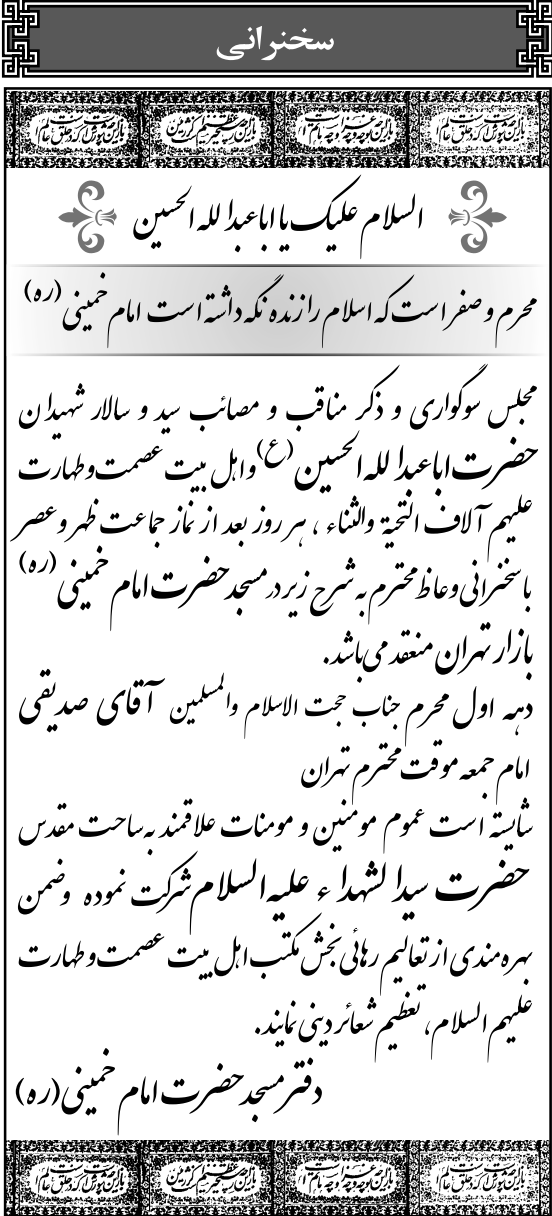 سخنرانی
السلام علیک یا اباعبدا لله الحسین
محرم و صفر است که اسلام را زنده نگه داشته است امام خمینی (ره)
مجلس سوگواری و ذکر مناقب و مصائب سید و سالار شهیدان
حضرت اباعبدا لله الحسین (ع) و اهل بیت عصمت و طهارت
علیهم آلاف التحیة والثناء ، هر روز بعد از نماز جماعت ظهر و عصر
با سخنرانی وعاظ محترم به شرح زیر در مسجد حضرت امام خمینی (ره)
بازار تهران منعقد می‌باشد.
دهه اول محرم جناب حجت الاسلام والمسلمین آقای صدیقی
امام جمعه موقت محترم تهران
شایسته است عموم مومنین و مومنات علاقمند به ساحت مقدس
حضرت سیدا لشهدا ء علیه السلام شرکت نموده وضمن
بهره‌مندی از تعالیم رهائی بخش مکتب اهل بیت عصمت و طهارت
علیهم السلام، تعظیم شعائر دینی نمایند.
دفتر مسجد حضرت امام خمینی (ره)